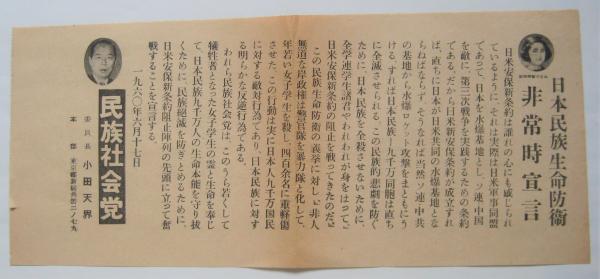 日本民族生命防衛
非常時宣言
日米安保新条約は誰れの心にも感じられ
ているように、それは実際は日米軍事同盟
であって、日本を水爆基地とし、ソ連、中国
を敵に、第三次戦争を実践するための条約
である。だから日米新安保条約が成立すれ
ば、直ちに日本が日米共同の水爆基地とな
らねばならず、そうなれば当然ソ連中共
の基地から水爆ロケット攻撃をまともにう
ける。すれば日本民族一九千万同胞は直ち
に全滅させられる。この民族的悲劇を防ぐ
ために、日本民族を全殺させないために、
全学連学生諸君やわれわれが身をはって、
日米安保新条約の阻止を戦ってきたのだ。
この民族生命防衛の義挙に対し、非人
無道な岸政権は警官隊を暴力隊と化して、
年若い女子学生を殺し、四百余名に重軽傷
させた。この行動は実に日本人九千万国民
に対する敵対行為であり、日本民族に対す
る明らかな反逆行為である。
われら民族社会党は、このうら若くして
犠牲者となった女子学生の霊と生命を奉じ
て、日本民族九千万人の生命本能を守り抜
くために、民族絶滅を防ぎとめるために、
日米安保新条約阻止陣列の先頭に立って奮
戦することを宣言する。
一九六〇年六月十七日
民族社会党
委員長 小田天界
本部 東京都新宿